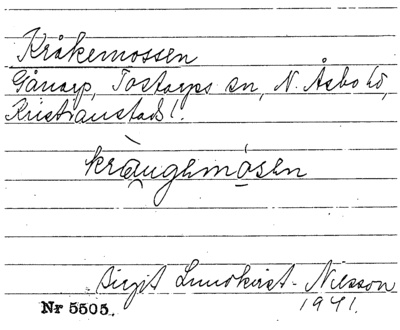 Kråkemossen
Gånarp, Tostarps sn, N. Åsbo hd,
Kristianstads l.
kràu̯gemósen
Birgit Lundkvist-Nilsson
1941.
Nr 5505.